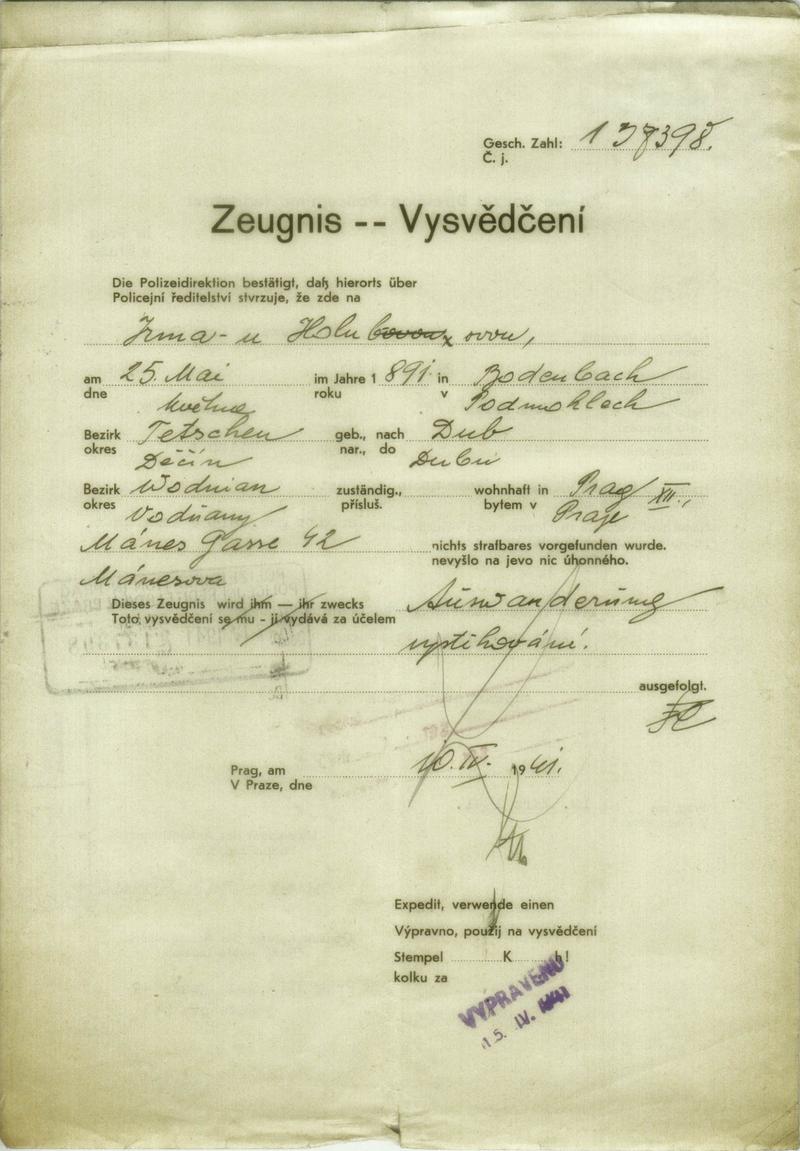 Gesch. Zahl: 137398.
Č. j.
Zeugnis -- Vysvědčení
Die Polizeidirektion bestätigt, daß hierorts über
Policejní ředitelství stvrzuje, že zde na
Irma - u Holubovou, ovou,
am 25. Mai im Jahre 1 891. in Bodenbach
dne května roku v Podmoklech
Bezirk Tetschen geb., nach Dub
okres Děčín nar., do Dubu
Bezirk Wodnian zuständig., wohnhaft in Prag XII.,
okres Vodňany přísluš. bytem v Praze
Mánes Gasse 42 nichts strafbares vorgefunden wurde.
Mánesova nevyšlo na jevo nic úhonného.
Dieses Zeugnis wird ihm — ihr zwecks Auswanderung
Toto vysvědčení se mu - jí vydává za účelem
vystěhování.
ausgefolgt.
Prag, am 10. IV. 1941.
V Praze, dne
Expedit, verwende einen
Výpravno, použij na vysvědčení
Stempel K h!
kolku za
VYPRAVENO
15. IV. 1941